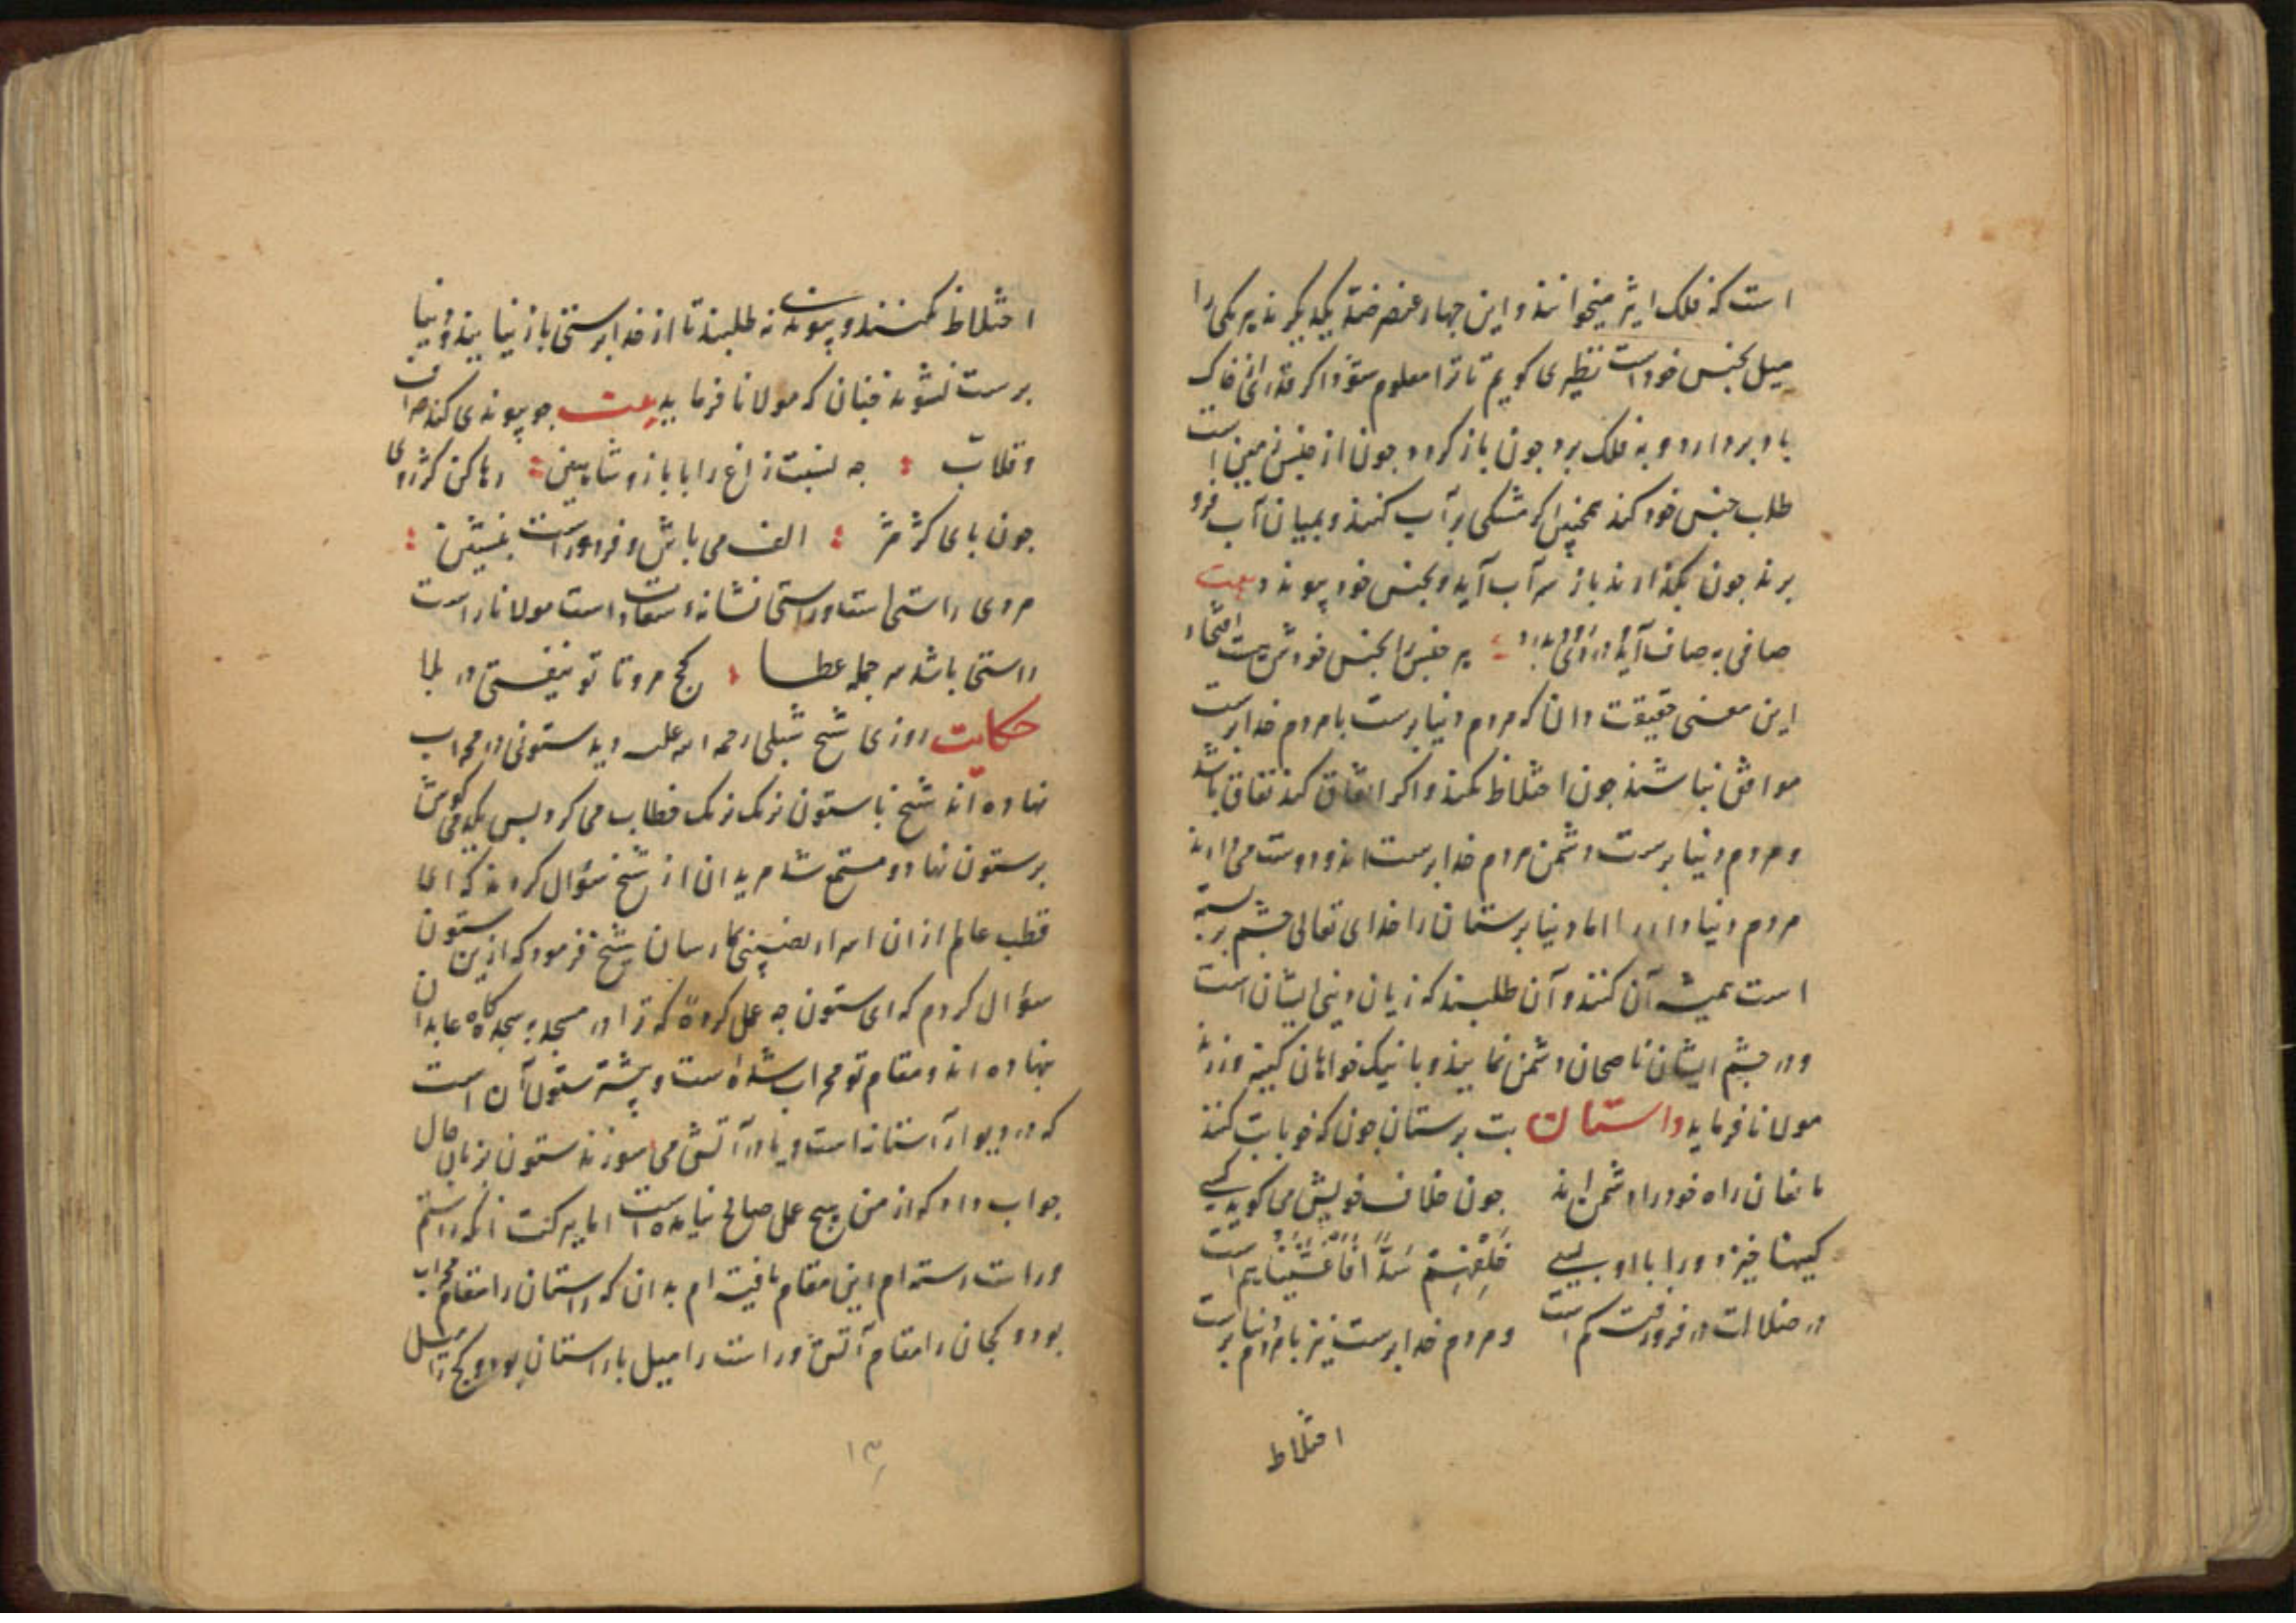 است که فلک اثیر میخوانند و این چهار عنصر ضد یکدیگرند هر یکی را
میل بجنس خود است نظیری کویم تا ترا معلوم شود اکر قدری خاک
باد بردارد و به فلک برد چون باز کردد چون از جنس زمین است
طلب جنس خود کند همچنین اکر مشکی پر آب کنند و بمیان آب فرو
برند چون بکذارند باز سر آب آید و بجنس خود پیوندد بیت
صافی به صاف آید دردی بدرد هر جنس را بجنس خودش هست اتحاد
این معنی حقیقت دان که مردم دنیا پرست با مردم خدا پرست
موافق نباشند چون اختلاط کنند و اکر اتفاق کنند نفاق باشد
و مردم دنیا پرست دشمن مردم خدا پرست اند و دوست می دارند
مردم دنیا دار را اما دنیا پرستان را خدای تعالی چشم بر بسته
است همیشه آن کنند و آن طلبند که زیان دینی ایشان است
و در چشم ایشان ناصحان دشمن نمایند و با نیک خواهان کینه ورزند
مولانا فرماید داستان بت پرستان چون که خو با بت کنند
مانعان راه خود را دشمن اند چون خلاف خویش می کوید کسی
کینها خیزد ورا با او بسی خلفهم سدا فاغشیناهم است
در ضلالت در فرو رفت کم است و مردم خدا پرست نیز با مردم دنیا پرست
اختلاط
اختلاط نکنند و پیوندی نه طلبند تا از خدا پرستی باز نیایند و دنیا
پرست نشوند چنان که مولانا فرماید بیت چو پیوندی کند صراف
و قلاب چه نسبت زاغ را با باز و شاهین رها کن کژروی
چون بای کژ مژ الف می باش و فرد و راست بنشین
مردی راستی است و راستی نشانه سعادت است مولانا راست
راستی باشد سر جمله عطا کج مرو تا تو نیفتی در بلا
حکایت روزی شیخ شبلی رحمه الله علیه دید ستونی در محراب
نهاده اند شیخ با ستون نزک نزک خطاب می کرد پس یکدمی کوش
بر ستون نهاد و مستمع شد مریدان از شیخ سؤال کردند که ای
قطب عالم از ان اسرار نصیبی بما رسان شیخ فرمود که ازین ستون
سؤال کردم که ای ستون چه عمل کردهٔ که ترا در مسجد و سجده کاه عابدان
نهاده اند و مقام تو محراب شده است و بیشتر ستون آن است
که در دیوار آستانه است و یا در آتش می سوزند ستون بزبان حال
جواب داد که از من هیچ عمل صالح نیامده است اما ببرکت انکه راستم
و راست رسته ام این مقام یافته ام بدان که راستان را مقام محراب
بود و کجان را مقام آتش و راست را میل با راستان بود و کج را میل